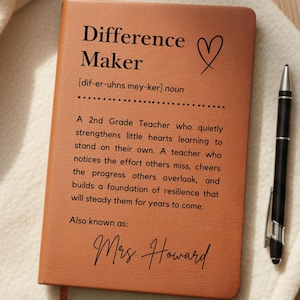 Difference
Maker
[dif-er-uhns mey-ker] noun
A 2nd Grade Teacher who quietly
strengthens little hearts learning to
stand on their own. A teacher who
notices the effort others miss, cheers
the progress others overlook, and
builds a foundation of resilience that
will steady them for years to come.
Also known as:
Mrs Howard